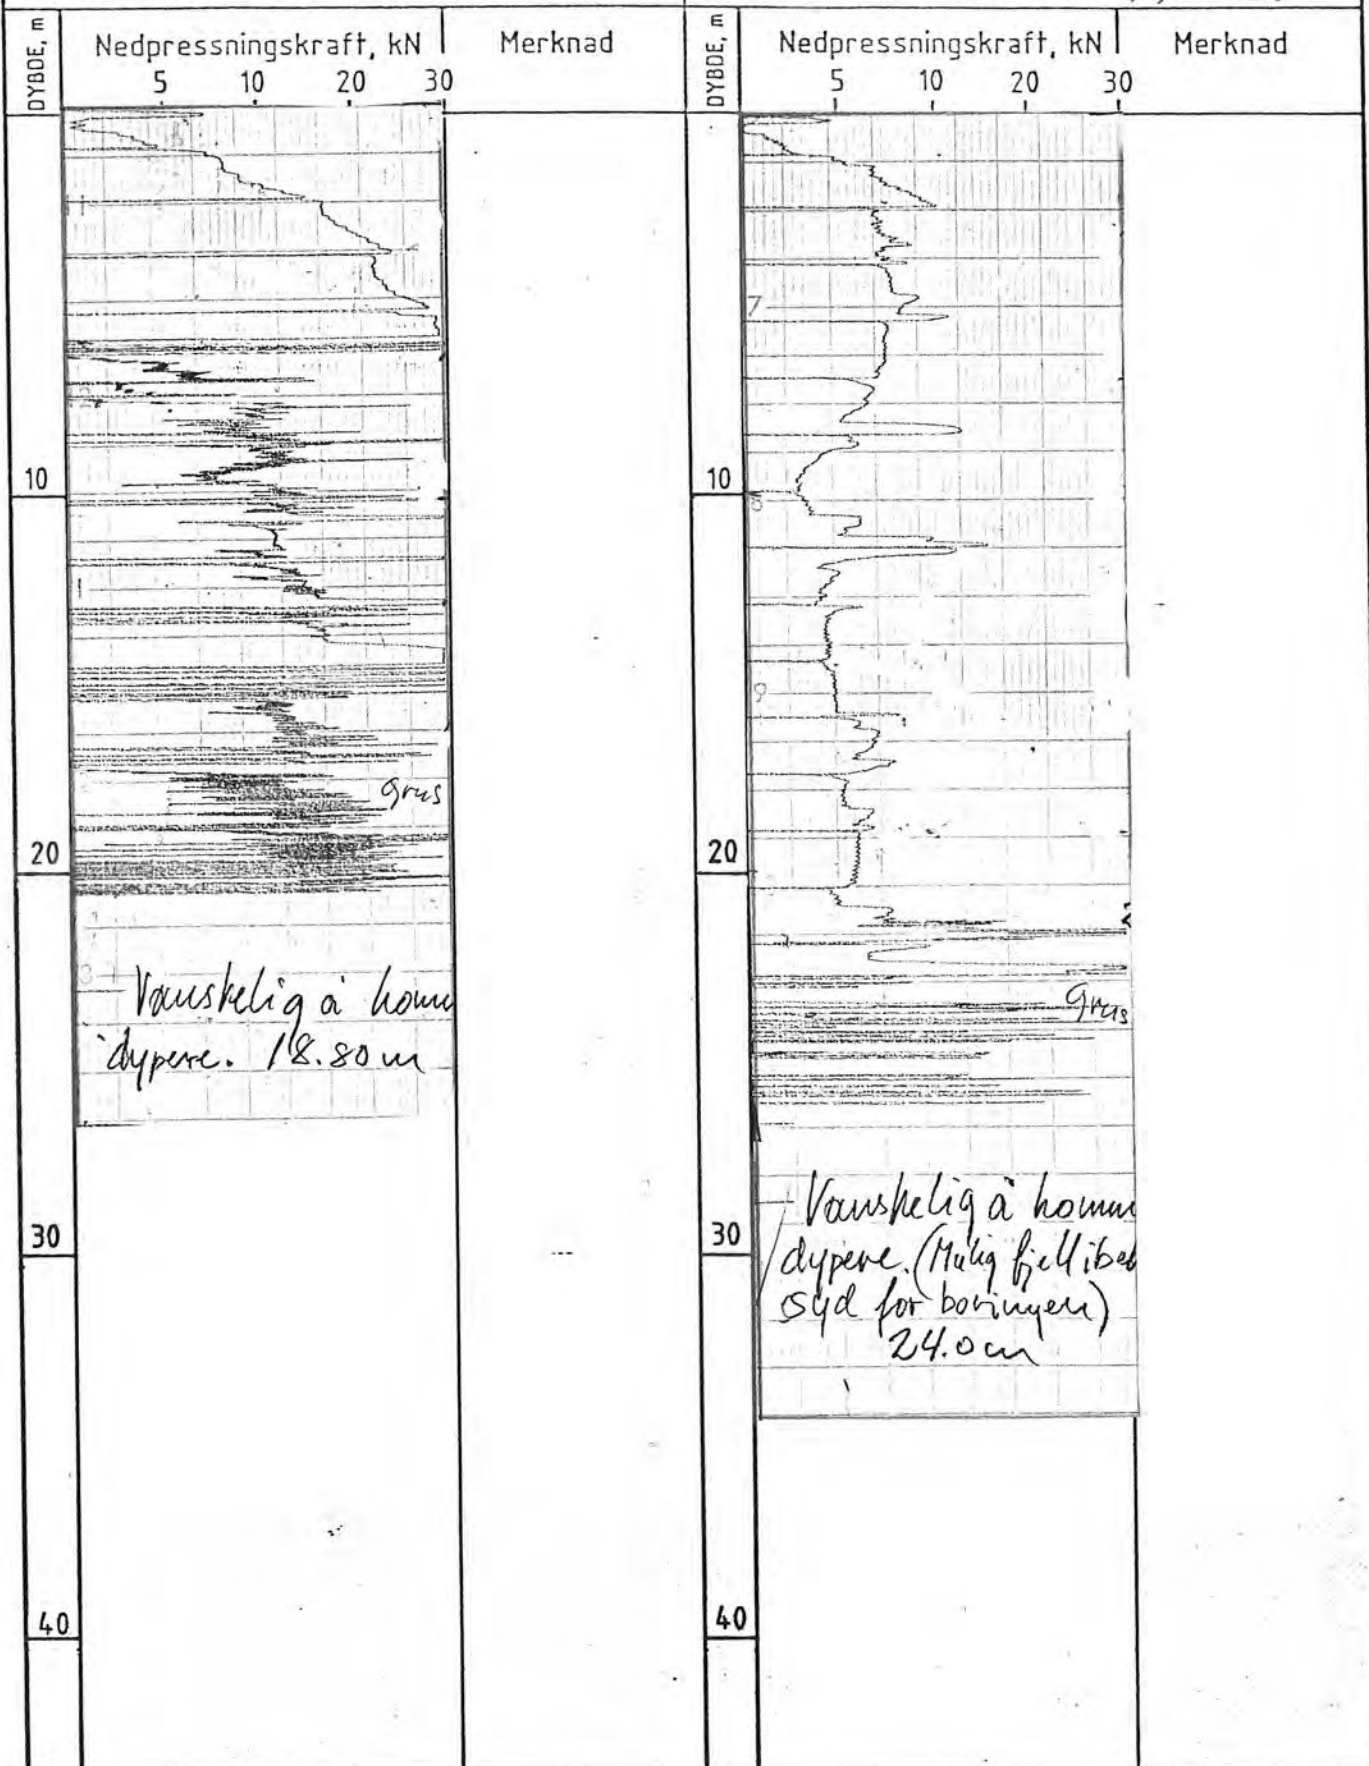 DYBDE, m
Nedpressningskraft, kN
5 10 20 30
Merknad
10
Grus
20
Vanskelig å komm
dypere. 18.80 m
30
40
DYBDE, m
Nedpressningskraft, kN
5 10 20 30
Merknad
7
10
8
9
Grus
20
Vanskelig å komm
dypere. (Mulig fjell i
syd for boringen)
24.0 m
30
40